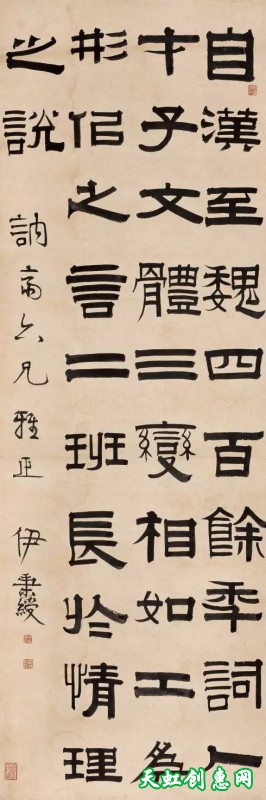 自漢至魏四百餘秊詞人
才子文體三變相如工為
形佀之言二班長於情理
之說
訥齋六兄雅正 伊秉綬
天虹创意网